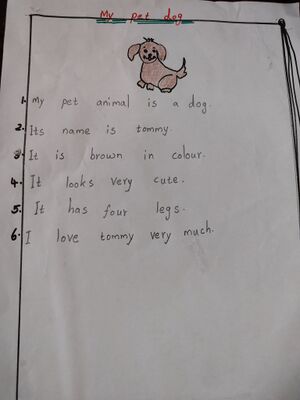 My pet dog
1. My pet animal is a dog.
2. Its name is tommy.
3. It is brown in colour.
4. It looks very cute.
5. It has four legs.
6. I love tommy very much.